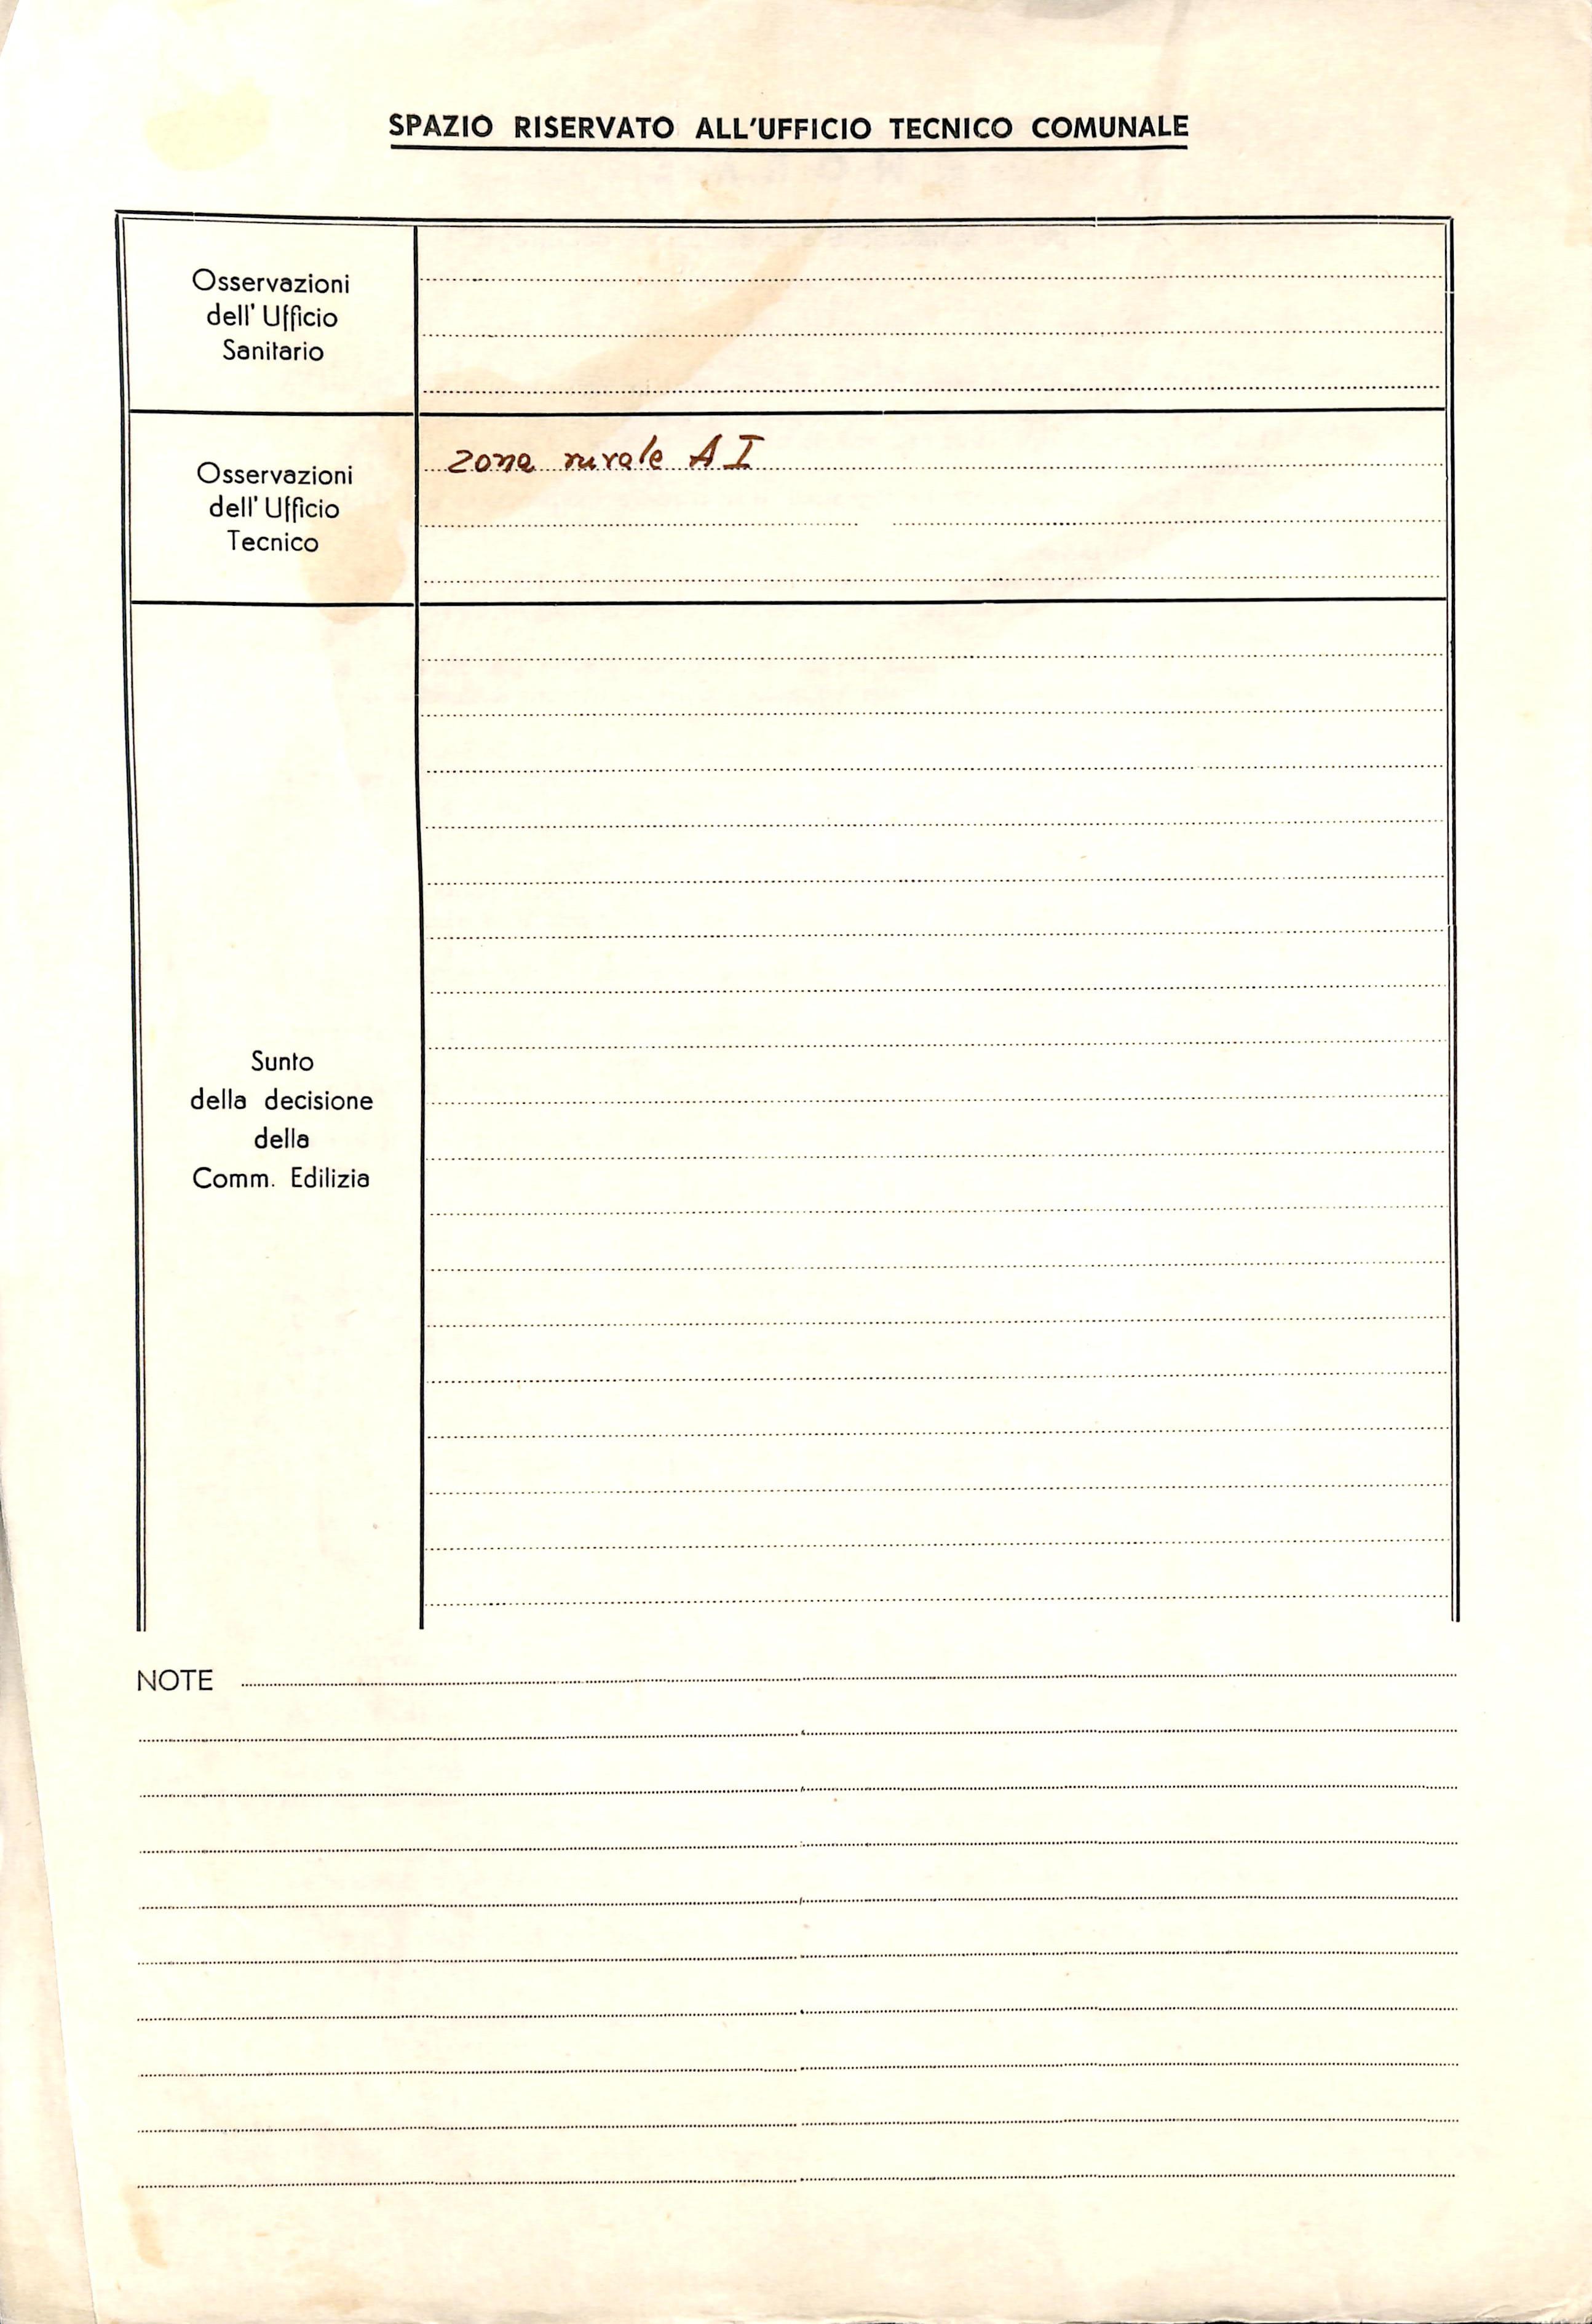 SPAZIO RISERVATO ALL'UFFICIO TECNICO COMUNALE
Osservazioni
dell' Ufficio
Sanitario
Osservazioni
dell' Ufficio
Tecnico
zona rurale A I
Sunto
della decisione
della
Comm. Edilizia
NOTE